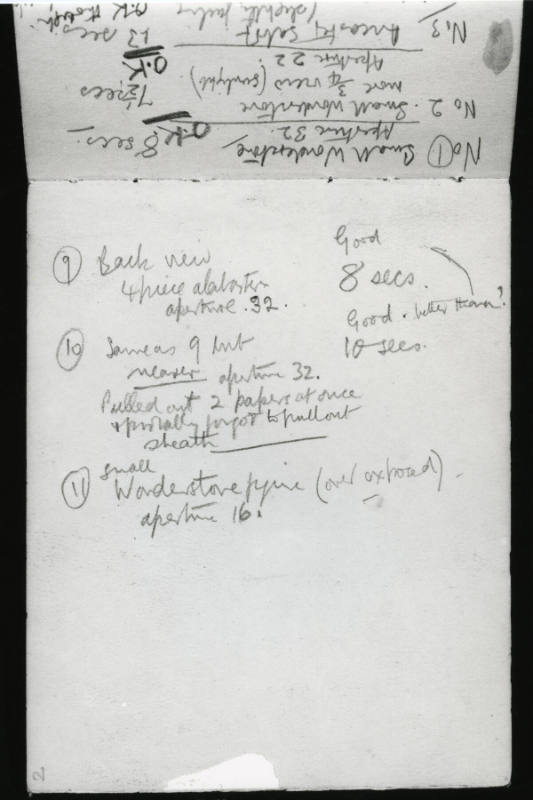 No ① Small Wonderstone
Aperture 32.
O.K 8 secs.
No 2. Small Wonderstone
more 3/4 view (sunlight)
Aperture 22.
O.K 7½ secs
No 3
13 secs
O.K
⑨ Back view
4 piece alabaster
aperture .32.
Good
8 secs.
⑩ Same as 9 but
nearer aperture 32.
Good. better than?
10 secs.
Pulled out 2 papers at once
forgot to pull out
sheath
⑪ small
Wonderstone (over exposed) -
aperture 16.
2